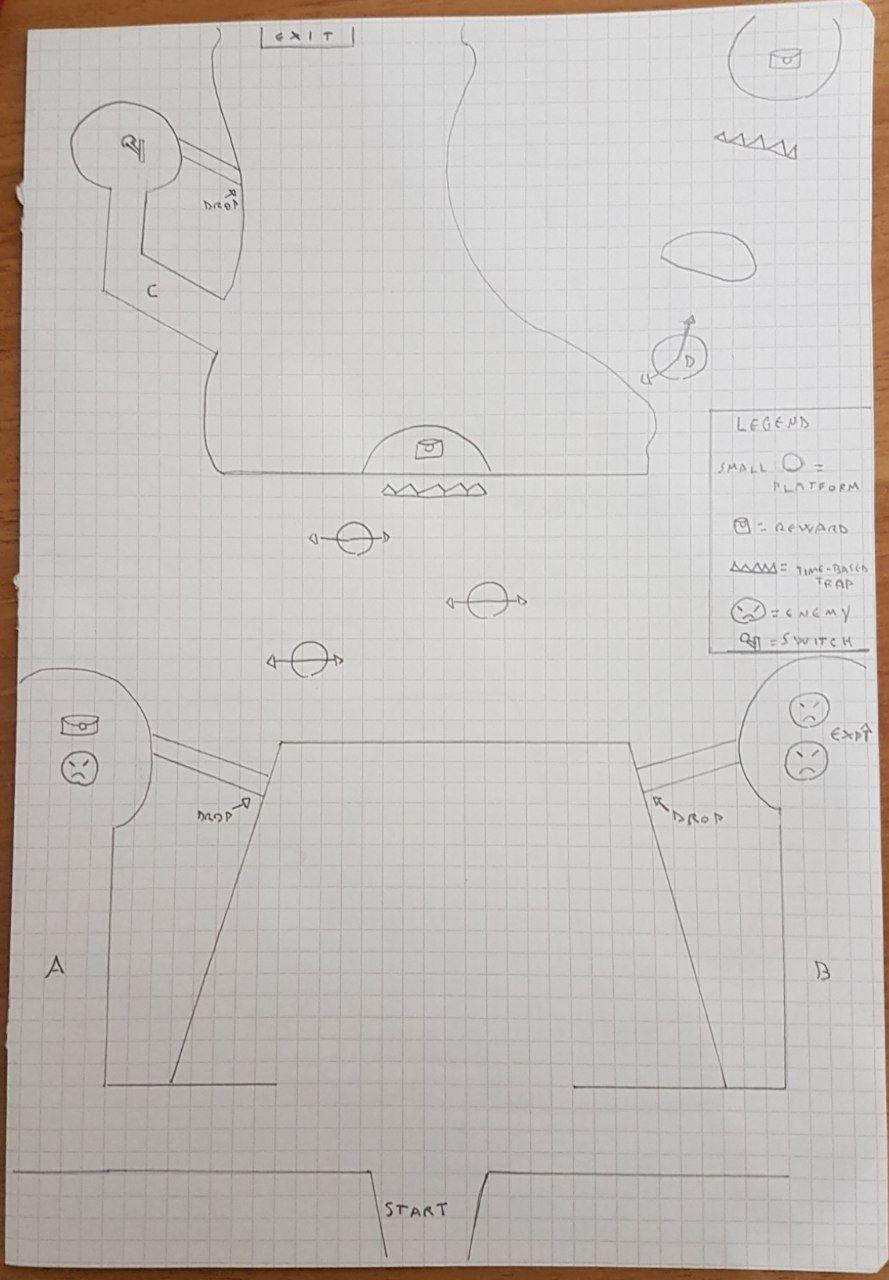 EXIT
DROP
C
D
LEGEND
SMALL = PLATFORM
= REWARD
= TIME-BASED
TRAP
= ENEMY
= SWITCH
DROP
DROP
A
B
START